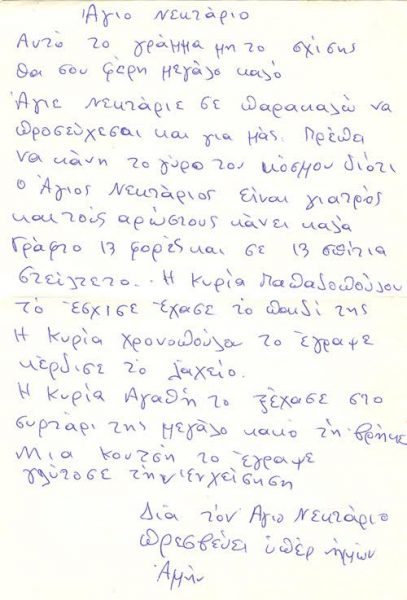 Άγιο Νεκτάριο
Αυτό το γράμμα μη το σχίσης
θα σου φέρη μεγάλο καλό
Άγιε Νεκτάριε σε παρακαλώ να
προσεύχεσαι και για μάς. Πρέπει
να κάνη το γύρο τον κόσμου διότι
ο Άγιος Νεκτάριος είναι γιατρός
και τούς αρώστους κάνει καλα
Γράφτο 13 φορές και σε 13 σπίτια
στείλτετο.. Η Κυρία Παπαδοπούλου
το έσχισε έχασε το παιδί της
Η Κυρία χρονοπούλου το έγραψε
κέρδισε το λαχείο.
Η Κυρία Αγαθή το ξέχασε στο
συρτάρι της μεγάλο κακό τη βρήκε
Μια κουτσή το έγραψε
γλύτοσε την ενχείσηση
Διά τόν Άγιο Νεκτάριο
πρεσβεύει ύπέρ ημών
Αμήν